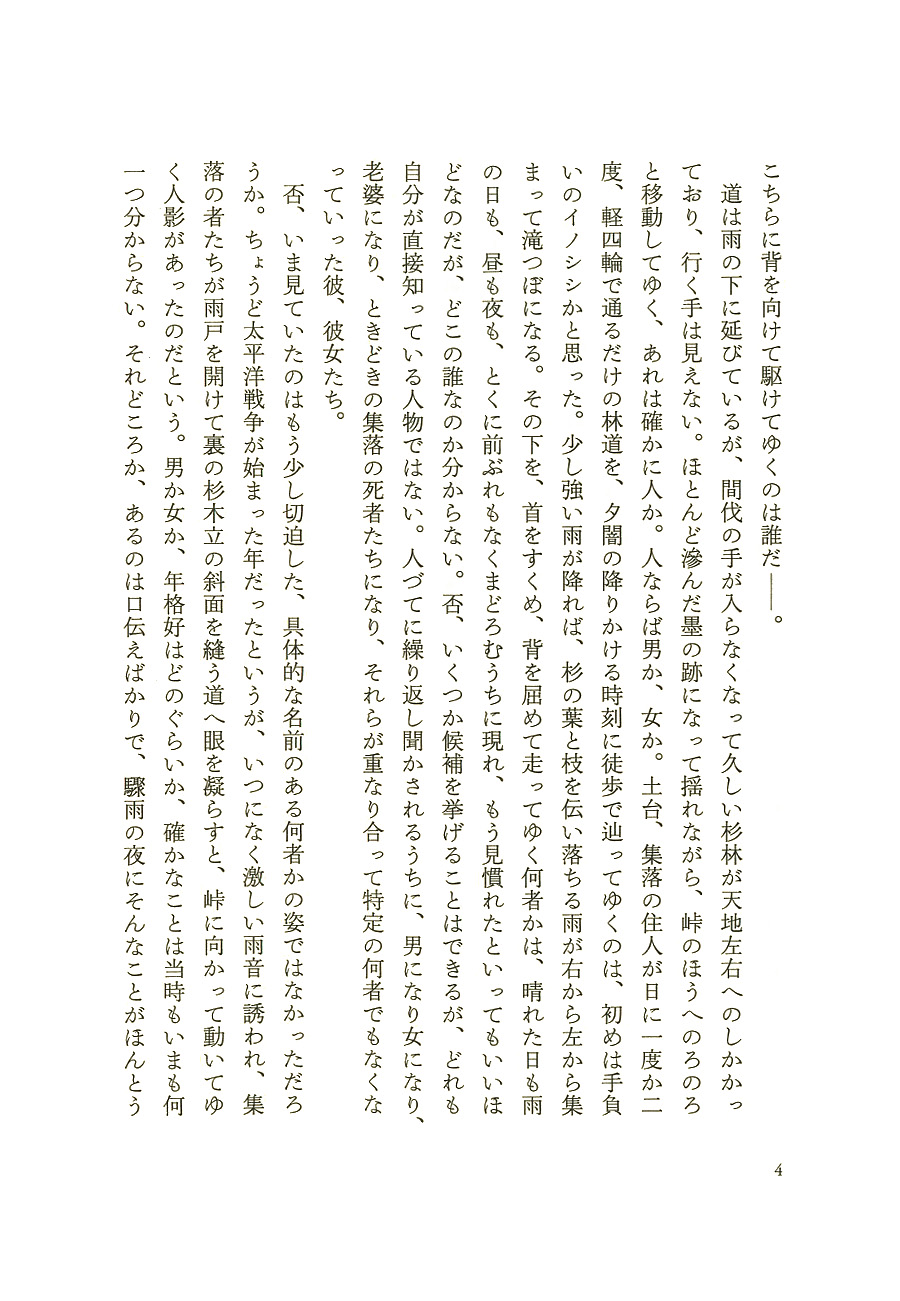 こちらに背を向けて駆けてゆくのは誰だ――。
　道は雨の下に延びているが、間伐の手が入らなくなって久しい杉林が天地左右へのしかかっ
ており、行く手は見えない。ほとんど滲んだ墨の跡になって揺れながら、峠のほうへのろのろ
と移動してゆく、あれは確かに人か。人ならば男か、女か。土台、集落の住人が日に一度か二
度、軽四輪で通るだけの林道を、夕闇の降りかける時刻に徒歩で辿ってゆくのは、初めは手負
いのイノシシかと思った。少し強い雨が降れば、杉の葉と枝を伝い落ちる雨が右から左から集
まって滝つぼになる。その下を、首をすくめ、背を屈めて走ってゆく何者かは、晴れた日も雨
の日も、昼も夜も、とくに前ぶれもなくまどろむうちに現れ、もう見慣れたといってもいいほ
どなのだが、どこの誰なのか分からない。否、いくつか候補を挙げることはできるが、どれも
自分が直接知っている人物ではない。人づてに繰り返し聞かされるうちに、男になり女になり、
老婆になり、ときどきの集落の死者たちになり、それらが重なり合って特定の何者でもなくな
っていった彼、彼女たち。
　否、いま見ていたのはもう少し切迫した、具体的な名前のある何者かの姿ではなかっただろ
うか。ちょうど太平洋戦争が始まった年だったというが、いつになく激しい雨音に誘われ、集
落の者たちが雨戸を開けて裏の杉木立の斜面を縫う道へ眼を凝らすと、峠に向かって動いてゆ
く人影があったのだという。男か女か、年格好はどのぐらいか、確かなことは当時もいまも何
一つ分からない。それどころか、あるのは口伝えばかりで、驟雨の夜にそんなことがほんとう
4